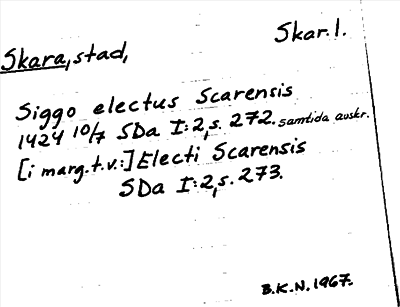 Skara, stad,
Skar. l.
Siggo electus Scarensis
1424 10/7 SDa I:2, s. 272. samtida avskr.
[i marg. t.v.:] Electi Scarensis
SDa I:2, s. 273.
B.K.N. 1967.